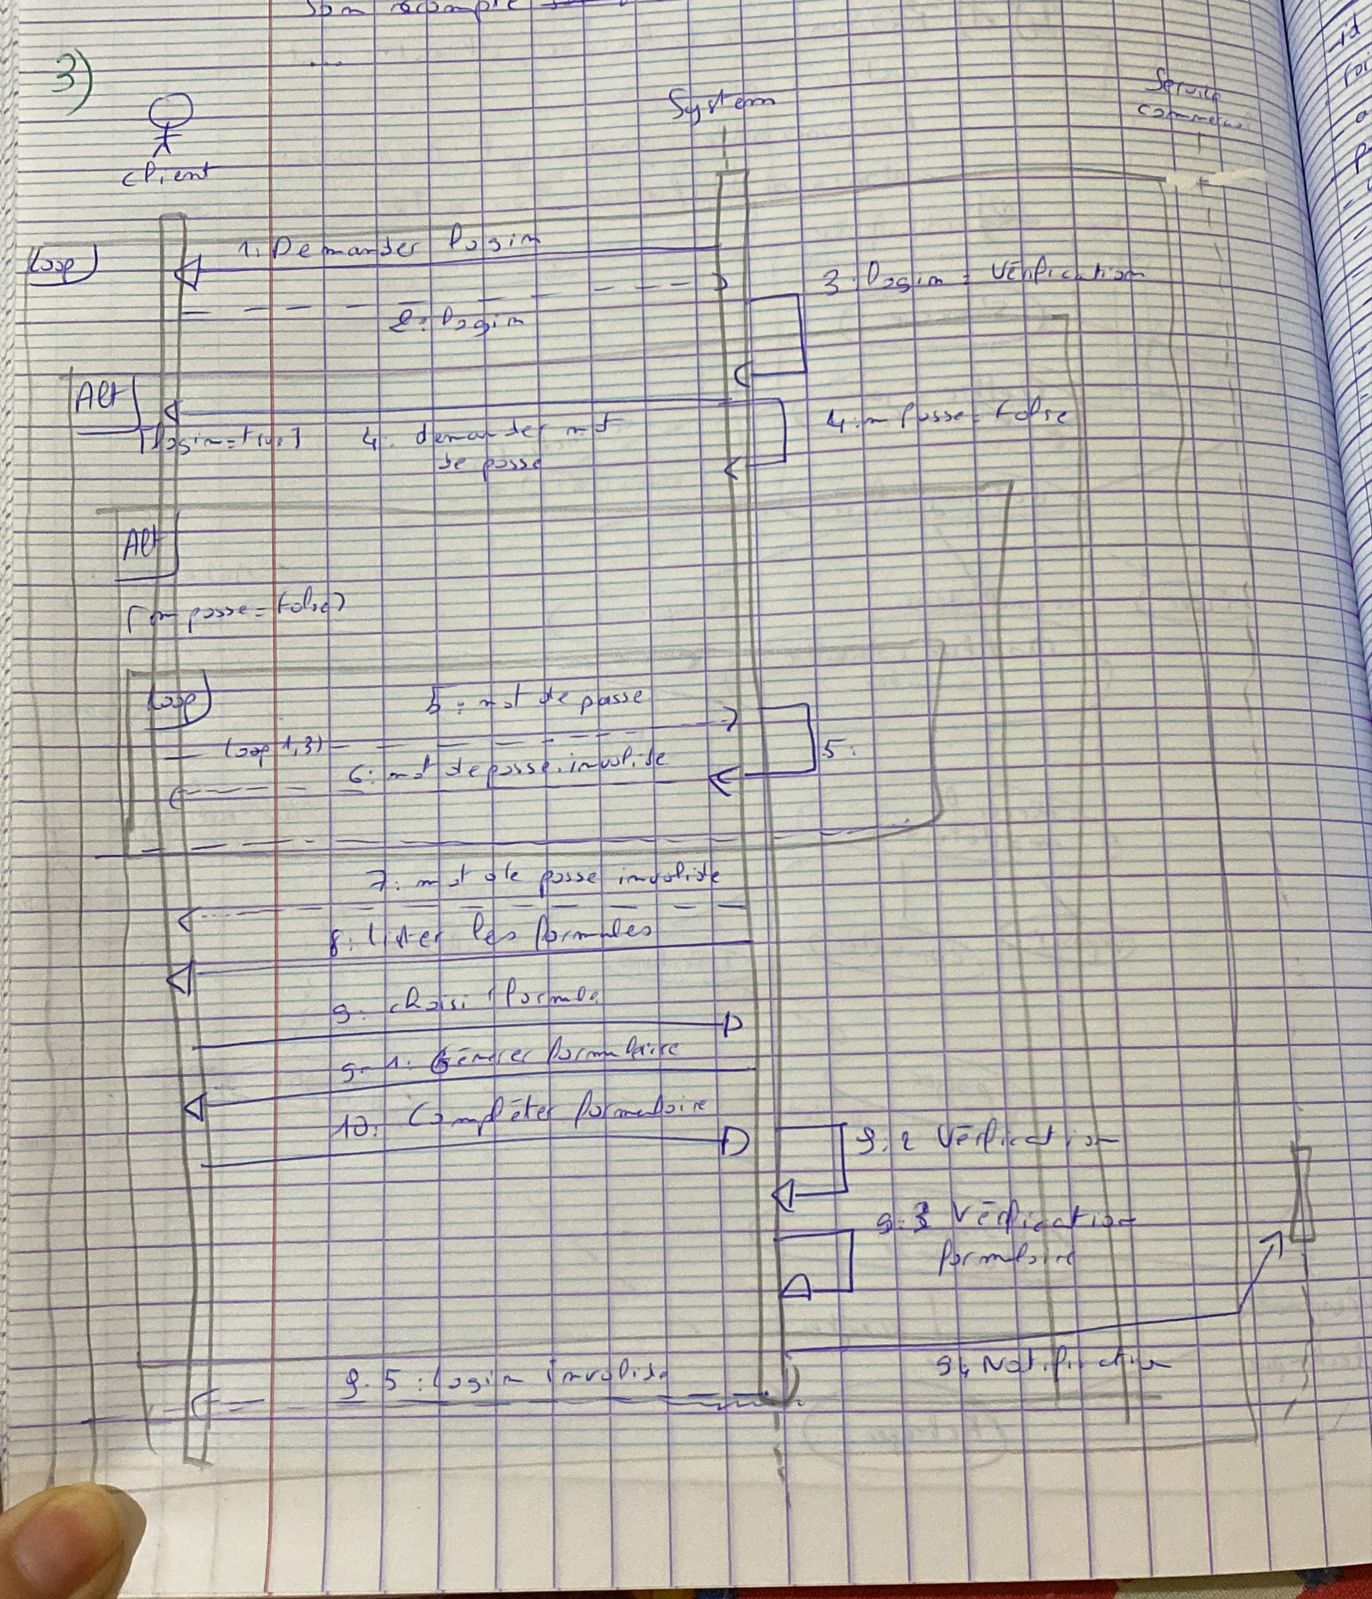 3)
client
System
Service
loop
1: Demander login
2: login
3: login = Vérification
Alt
[login=true]
4: demander mot
de passe
4: m passe = false
Alt
[m passe = false]
loop
5: mot de passe
(oop 1,3)
6: mot de passe invalide
5:
7: mot de passe invalide
8: Lister les formules
9: choisi formule
9.1: Générer formulaire
10: Compléter formulaire
9.2 Vérification
9.3 Vérification
formulaire
94 Notification
9.5: login invalide